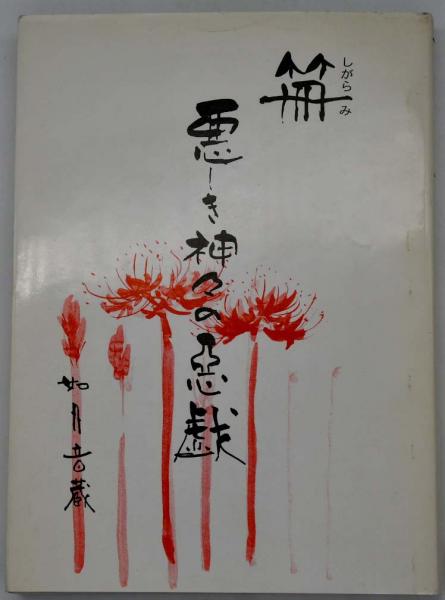 笧
しがらみ
悪しき神々の惡戯
如月音蔵